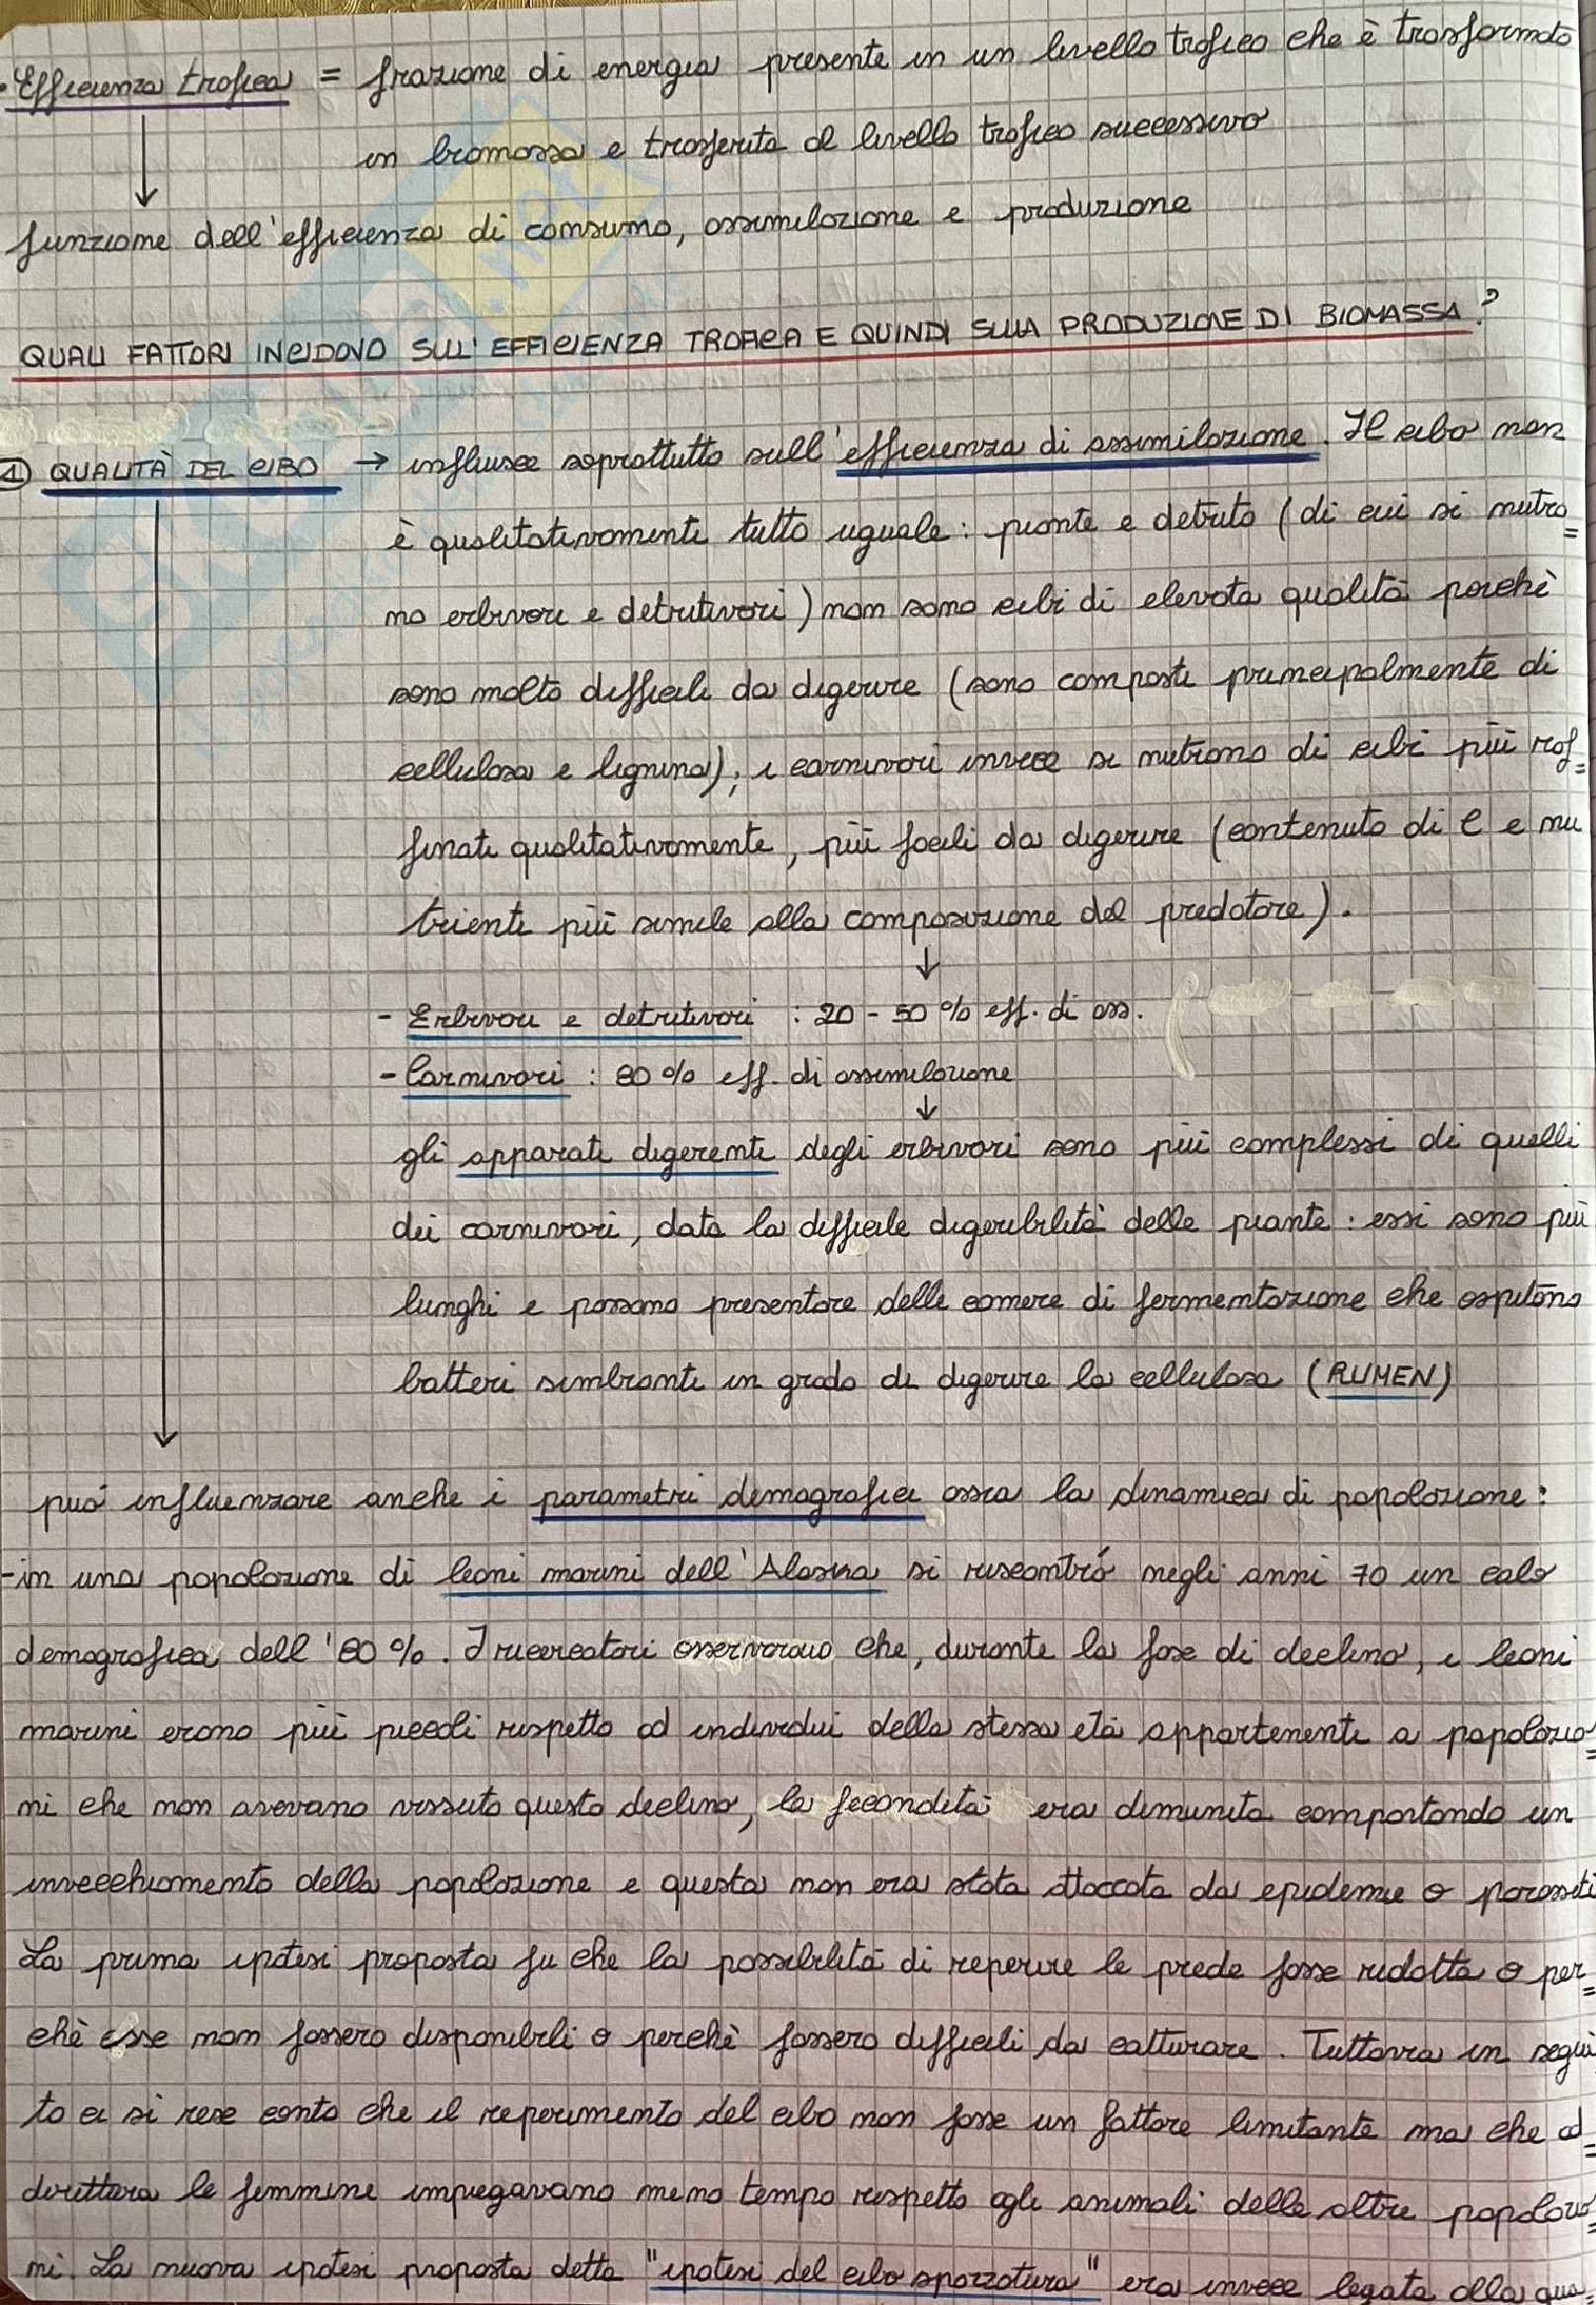 • Efficienza trofica = frazione di energia presente in un livello trofico che è trasformata
in biomassa e trasferita al livello trofico successivo
funzione dell'efficienza di consumo, assimilazione e produzione
QUALI FATTORI INCIDONO SULL'EFFICIENZA TROFICA E QUINDI SULLA PRODUZIONE DI BIOMASSA?
① QUALITÀ DEL CIBO → influisce soprattutto sull'efficienza di assimilazione. Il cibo non
è qualitativamente tutto uguale: piante e detrito (di cui si nutro=
no erbivori e detritivori) non sono cibi di elevata qualità perchè
sono molto difficili da digerire (sono composti principalmente di
cellulosa e lignina); i carnivori invece si nutrono di cibi più raf=
finati qualitativamente, più facili da digerire (contenuto di C e nu
trienti più simile alla composizione del predatore).
↓
- Erbivori e detritivori : 20 - 50 % eff. di ass.
- Carnivori : 80 % eff. di assimilazione
↓
gli apparati digerenti degli erbivori sono più complessi di quelli
dei carnivori, data la difficile digeribilità delle piante : essi sono più
lunghi e possono presentare delle camere di fermentazione che ospitano
batteri simbionti in grado di digerire la cellulosa (RUMEN)
può influenzare anche i parametri demografici ossia la dinamica di popolazione:
- in una popolazione di leoni marini dell'Alaska si riscontrò negli anni 70 un calo
demografico dell'80 %. I ricercatori osservarono che, durante la fase di declino, i leoni
marini erano più piccoli rispetto ad individui della stessa età appartenenti a popolazio=
ni che non avevano vissuto questo declino, la fecondità era diminuita comportando un
invecchiamento della popolazione e questa non era stata attaccata da epidemie o parassiti
La prima ipotesi proposta fu che la possibilità di reperire le prede fosse ridotta o per=
chè esse non fossero disponibili o perchè fossero difficili da catturare. Tuttavia in segui
to ci si rese conto che il reperimento del cibo non fosse un fattore limitante ma che ad=
dirittura le femmine impiegavano meno tempo rispetto agli animali delle altre popolazio=
ni. La nuova ipotesi proposta detta "ipotesi del cibo spazzatura" era invece legata alla qua=